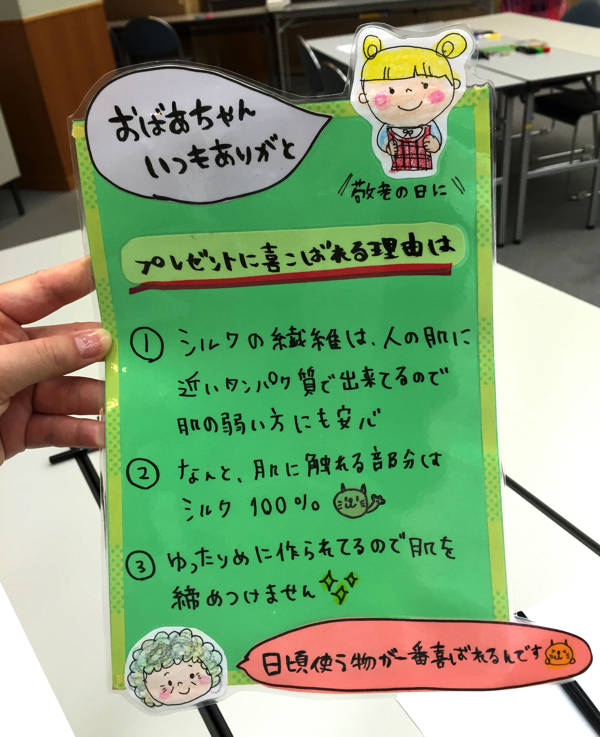 おばあちゃん
いつもありがと
敬老の日に
プレゼントに喜こばれる理由は
① シルクの繊維は、人の肌に
近いタンパク質で出来てるので
肌の弱い方にも安心
② なんと、肌に触れる部分は
シルク 100%
③ ゆったりめに作られてるので肌を
締めつけません
日頃使う物が一番喜ばれるんです